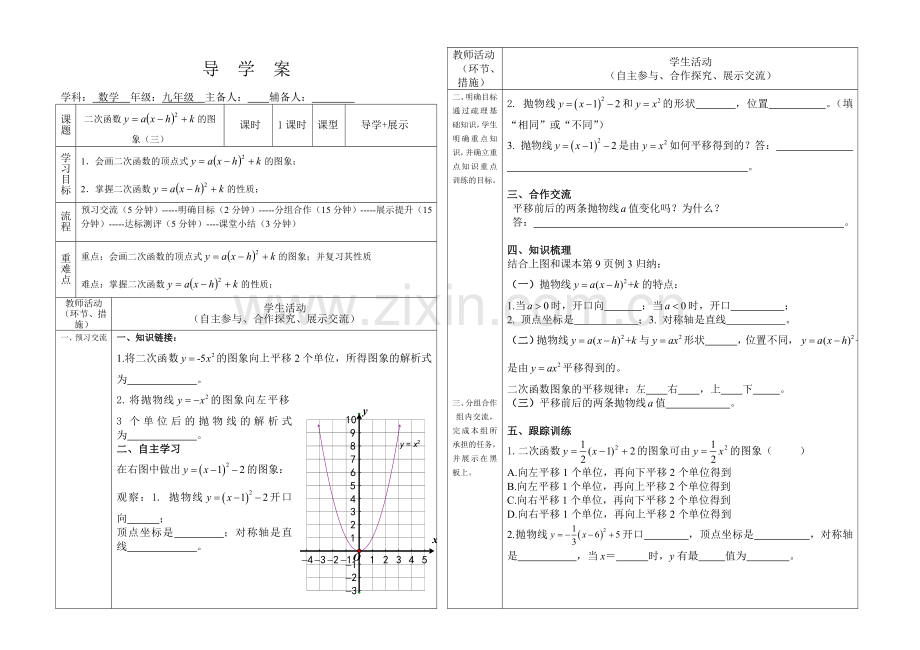 导 学 案
学科： 数学 年级：九年级 主备人： 辅备人：
课题
二次函数 y=a(x-h)²+k 的图象（三）
课时
1 课时
课型
导学+展示
学习目标
1．会画二次函数的顶点式 y=a(x-h)²+k 的图象；
2．掌握二次函数 y=a(x-h)²+k 的性质；
流程
预习交流（5 分钟）-----明确目标（2 分钟）-----分组合作（15 分钟）-----展示提升（15
分钟）-----达标测评（5 分钟）----课堂小结（3 分钟）
重难点
重点：会画二次函数的顶点式 y=a(x-h)²+k 的图象；并复习其性质
难点：掌握二次函数 y=a(x-h)²+k 的性质；
教师活动
（环节、措施）
学生活动
（自主参与、合作探究、展示交流）
一、预习交流
一、知识链接：
1.将二次函数 y=-5x² 的图象向上平移 2 个单位，所得图象的解析式
为____________。
2. 将抛物线 y=-x² 的图象向左平移
3 个单位后的抛物线的解析式
为____________。
二、自主学习
在右图中做出 y=(x-1)²-2 的图象：
观察：1. 抛物线 y=(x-1)²-2 开口
向______；
顶点坐标是_________；对称轴是直
线____________。
y
10
9
8
7
6
5
4
3
2
1
y = x²
x
O
-4 -3 -2 -1 1 2 3 4 5
-1
-2
-3
教师活动
（环节、措施）
学生活动
（自主参与、合作探究、展示交流）
二、明确目标
通过疏理基
础知识，学生
明确重点知
识，并确立重
点知识重点
训练的目标。
2. 抛物线 y=(x-1)²-2 和 y=x² 的形状_______，位置__________。（填
“相同”或“不同”）
3. 抛物线 y=(x-1)²-2 是由 y=x² 如何平移得到的？答：______________
________________________________________。
三、合作交流
平移前后的两条抛物线 a 值变化吗？为什么？
答：________________________________________。
四、知识梳理
结合上图和课本第 9 页例 3 归纳：
（一）抛物线 y=a(x-h)²+k 的特点：
1.当 a>0 时，开口向______；当 a<0 时，开口__________；
2. 顶点坐标是___________；3. 对称轴是直线___________。
（二）抛物线 y=a(x-h)²+k 与 y=ax² 形状______，位置不同， y=a(x-h)²
是由 y=ax² 平移得到的。
二次函数图象的平移规律：左___右___，上___下___。
（三）平移前后的两条抛物线 a 值___________。
三、分组合作
组内交流，
完成本组所
承担的任务，
并展示在黑
板上。
五、跟踪训练
1. 二次函数 y=1/2(x-1)²+2 的图象可由 y=1/2x² 的图象（ ）
A.向左平移 1 个单位，再向下平移 2 个单位得到
B.向左平移 1 个单位，再向上平移 2 个单位得到
C.向右平移 1 个单位，再向下平移 2 个单位得到
D.向右平移 1 个单位，再向上平移 2 个单位得到
2.抛物线 y=-1/3(x-6)²+5 开口________，顶点坐标是__________，对称轴
是__________，当 x＝______时，y 有最____值为________。
www.zixin.com.cn